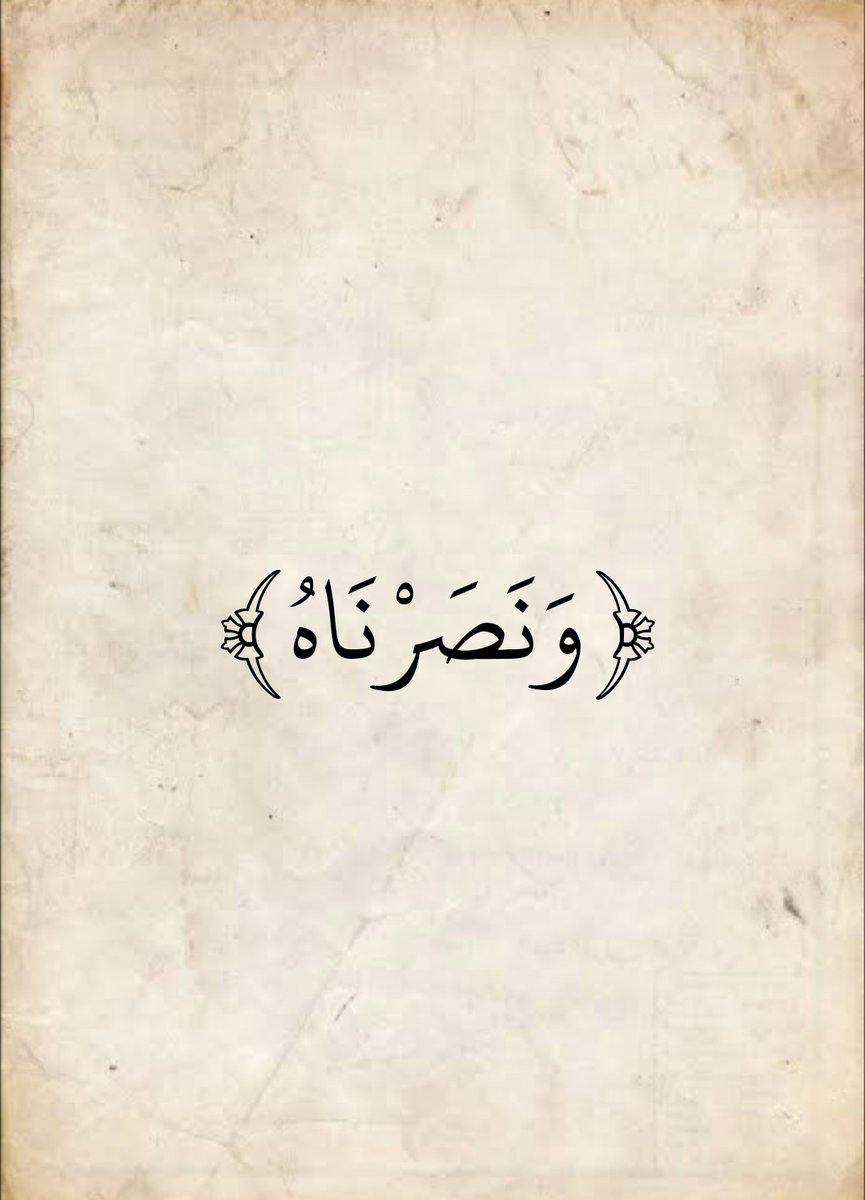 ﴿وَنَصَرْنَاهُ﴾